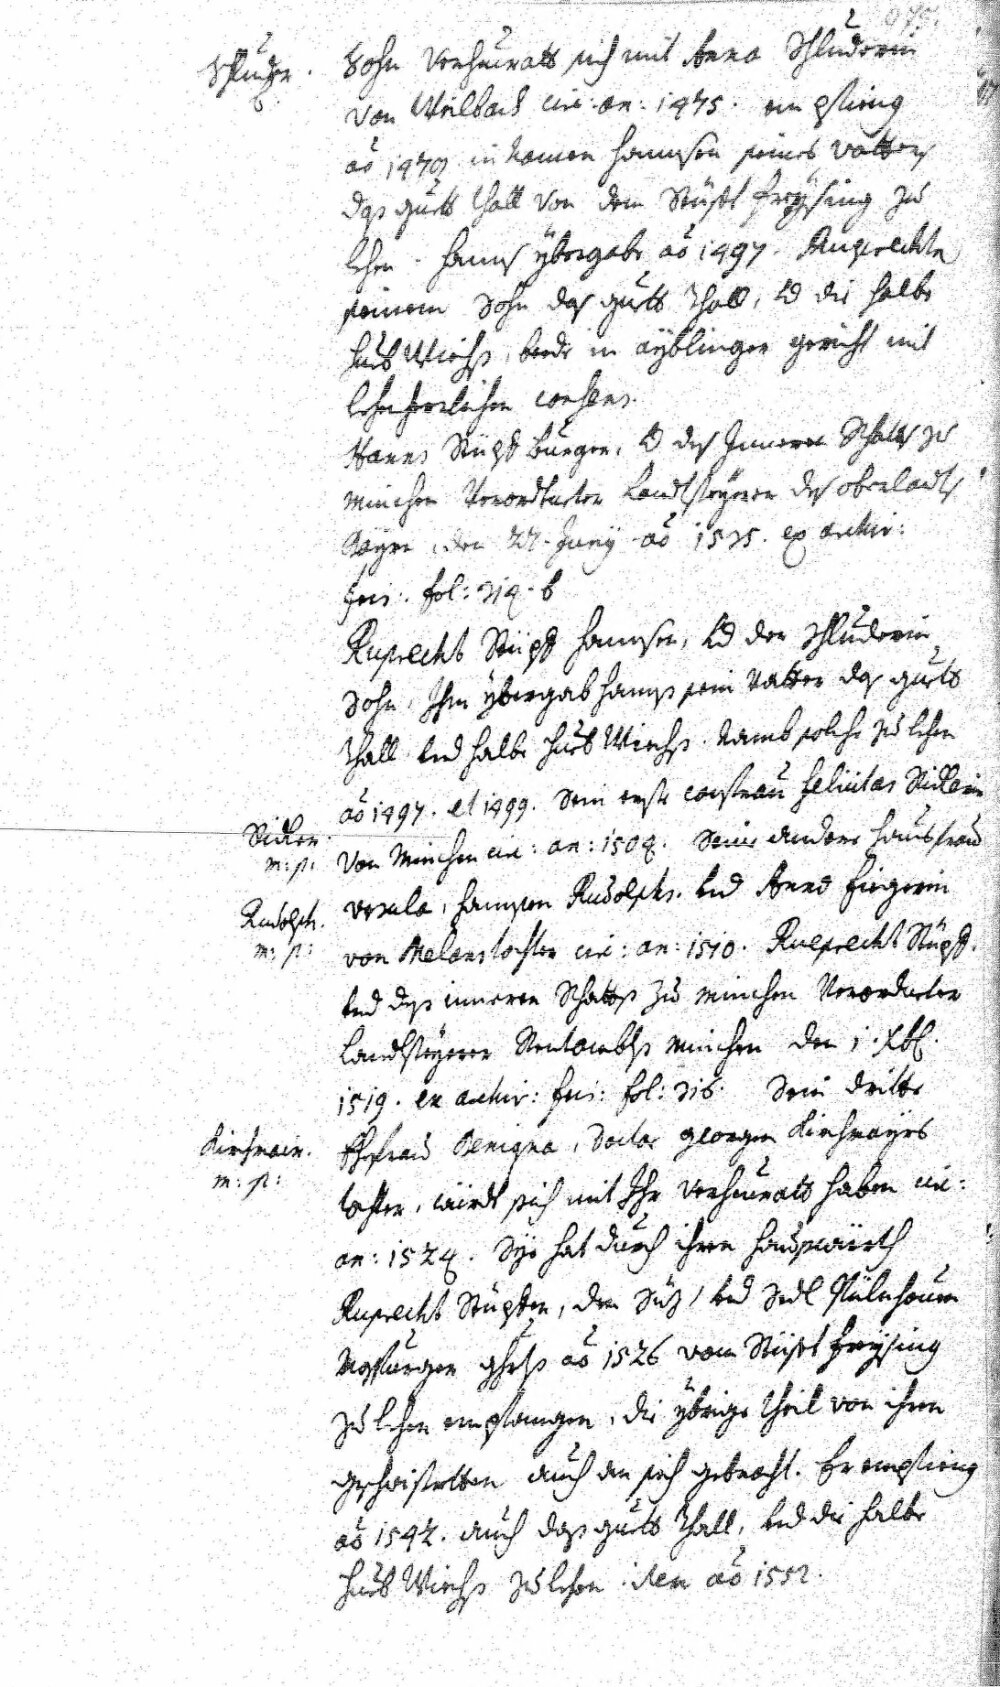 075.
Schluder. Sohn verheuratt sich mit Anna Schluderin
von Weilbach circ: an: 1475. empfieng
aō 1479 in Namen Hannsen seines vatters
das guett Thall von dem Stüfft Freysing zu
lehen. Hanns ybergabe aō 1497. Ruprechten
seinem Sohn das guett Thall, und die halbe
hueb Wiechs, beede in ayblinger gericht mit
lehenherrlichen consens.
Hanns Stüpf burger, und des Innern Rhats zu
München Verordneter Landtsteyrer des oberlandts
Bayrn, den 27. Juny aō 1535. ex archiv:
fol: 314. b
Ruprecht Stüpf Hannsen, und der Schluderin
Sohn, Ihm ybergab Hanns sein Vatter das guett
Thall und halbe hueb Wiechs. Namb solche zu lehen
aō 1497. et 1499. Sein erste Felicitas Ridlerin
Ridler. von München circ: an: 1504. Seine andere hausfrau
m: p:
Rudolph. Ursula, Hannsen Rudolphs und Anna Fiegerin
m: p: von Melans tochter circ: an: 1510. Ruprecht Stüpf.
und des inneren Rhatts zu München Verordneter
Landtsteyrer Rentambts München den 1. Xbl.
1519. ex archiv: fol: 316. Sein dritte
Kirchmair. Ehefrau Benigna, Doctor Georgen Kirchmayrs
m: p: tochter, würdt sich mit Ihr verheuratt haben circ:
an: 1524. Sye hat durch ihren hauswürth
Ruprecht Stüpfen, den Siz, und Sedl
ghts aō 1526 vom Stüfft Freysing
zu lehen empfangen, die ybrige theil von ihren
geschwistretten auch an sich gebracht. Er empfieng
aō 1542. auch das guett Thall, und die halbe
hueb Wiechs zu lehen. item aō 1552.